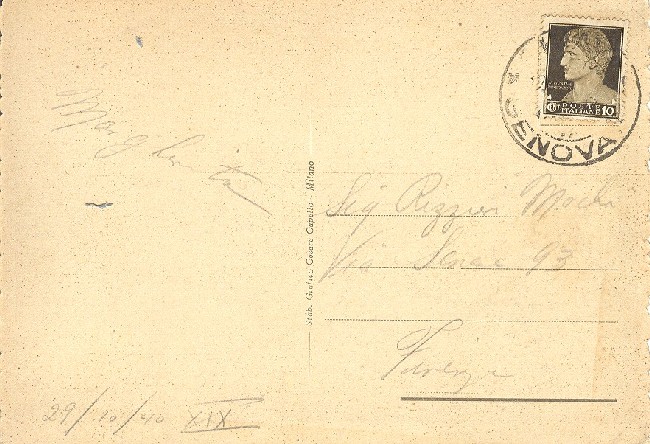 Margherita
29/10/40 XIX
Stab. Grafico Cesare Capello - Milano
POSTE
ITALIANE 10
GENOVA
Sig
Via 93
Firenze